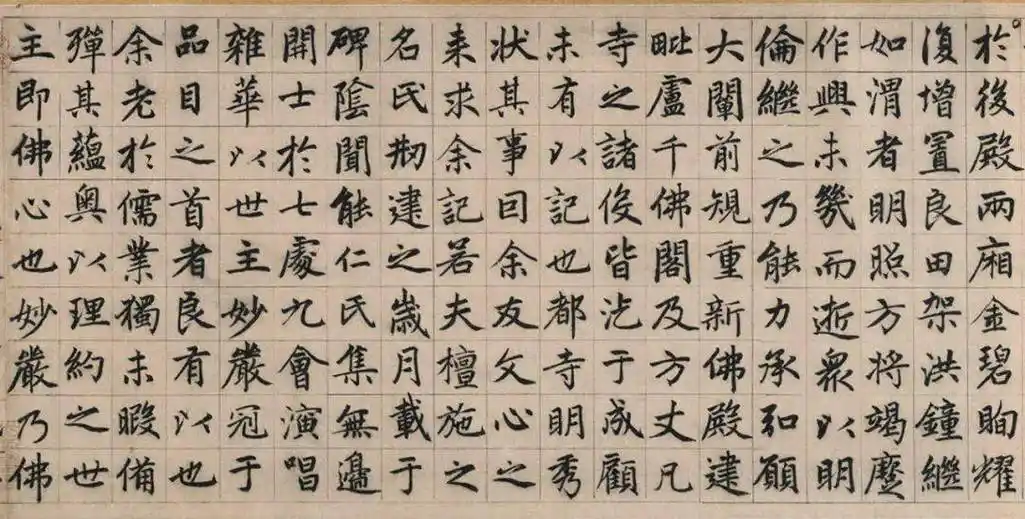 於後殿兩廂金碧眴耀
復增置良田架洪鐘繼
如渭者明照方將竭
作興未幾而逝衆以明
倫繼之乃能力承弘願
大闡前規重新佛殿建
毗盧千佛閣及方丈凡
寺之諸役皆汔于成顧
未有以記也都寺明秀
狀其事回余友文心之
來求余記若夫檀施之
名氏刱建之歲月載于
碑陰聞能仁氏集無邊
開士於七處九會演唱
雜華以世主妙嚴冠于
品目之首者良有以也
余老於儒業獨未暇備
殫其蘊奧以理約之世
主即佛心也妙嚴乃佛